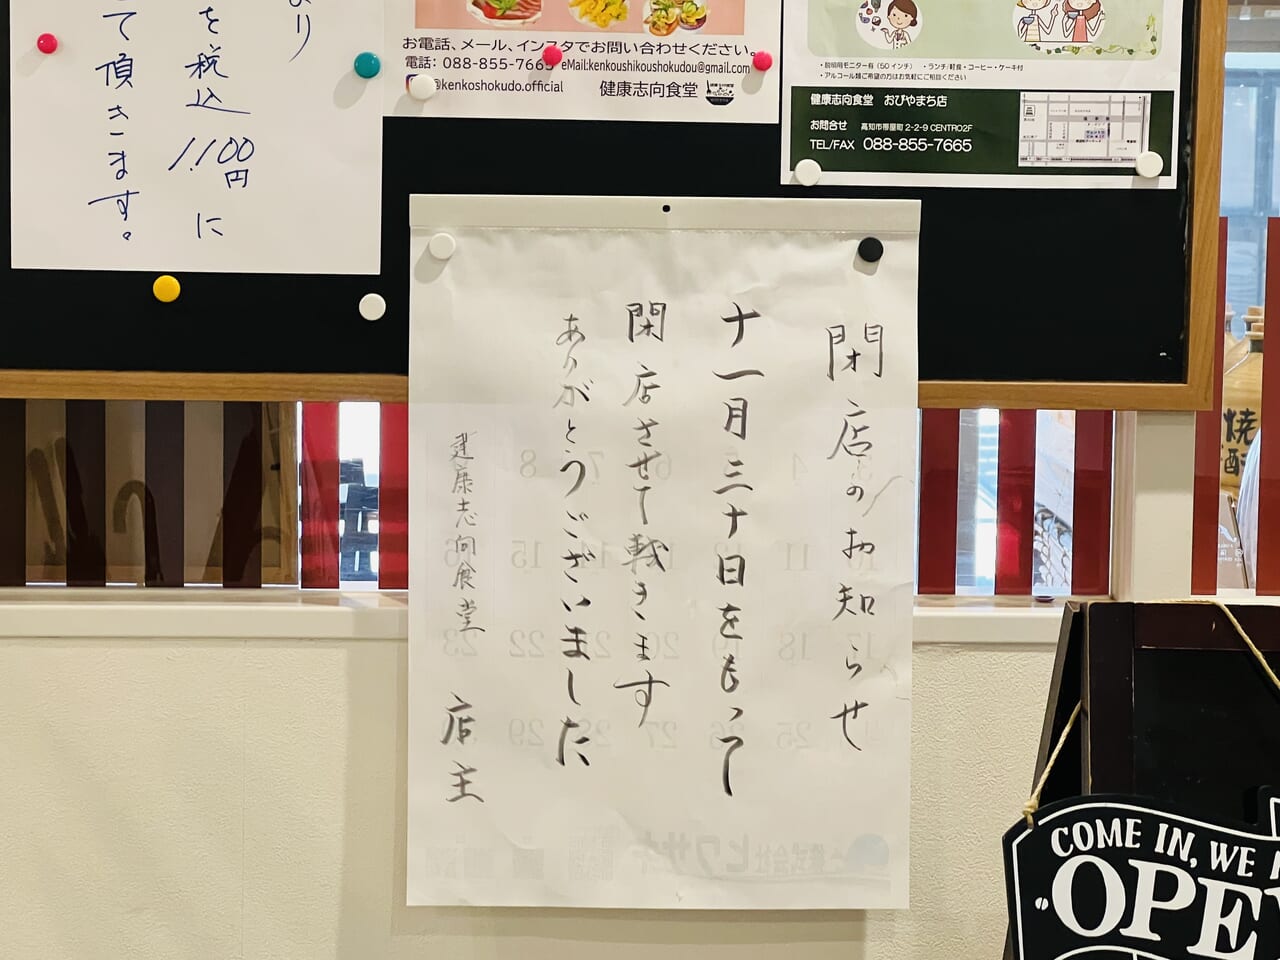 より
を税込1,100円に
て頂きます。
お電話、メール、インスタでお問い合わせください。
電話：088-855-7665 eMail:kenkoushikoushokudou@gmail.com
@kenkoshokudo.official 健康志向食堂
・説明用モニター有（50インチ） ・ランチ/軽食・コーヒー・ケーキ付
・アルコール類ご希望の方はお気軽にご相談ください
健康志向食堂 おびやまち店
お問合せ 高知市帯屋町 2-2-9 CENTRO2F
TEL/FAX 088-855-7665
閉店のお知らせ
十一月三十日をもって
閉店させて戴きます
ありがとうございました
健康志向食堂 店主
焼酎
COME IN, WE A
OPE